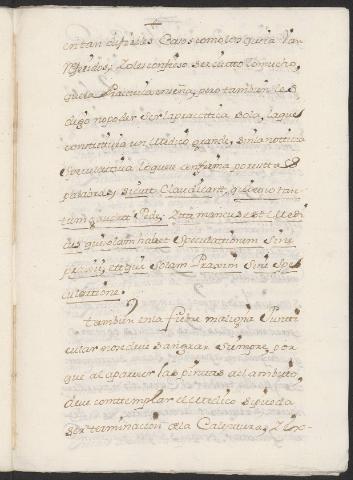 en tan difisiles Casos como los que ia van
Referidos; Io les confieso de cuatro lo mucho,
que la Practica enseña, pero tambien les
digo no poder ser la practtica sola, la que
constituia un Medico grande, sin la notticia
Speculactiva lo que confirma
palabras, sicut Claudicant, qui uno tan-
tum gaudent Pede; Ita mancus est Me-
dicus qui solam habet Speculationem Sine
praxi, et qui Solam Praxim Sine Spe-
culatione.
tambien en la fiebre maligna Puntti-
cular no se deve sangrar siempre, por
que al aparecer las pintas del ambito,
deve comtemplar el Medico si pueda
ser terminacion de la Calentura, I